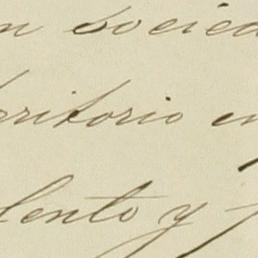 n socied
erritorio en
lento y